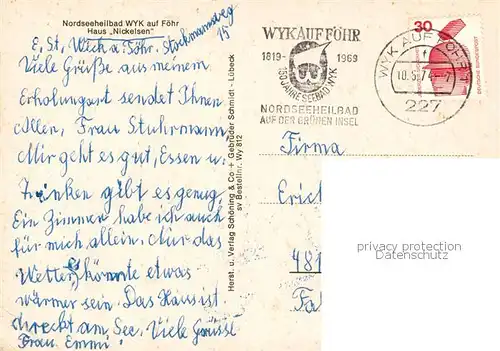 Nordseeheilbad WYK auf Föhr
Haus „Nickelsen"
E. St. Wich a. Föhr. Stockmannsweg
15
Viele Grüße aus meinem
Erholungsort sendet Ihnen
Allen, Frau Stuhrmann
Mir geht es gut, Essen u.
Trinken gibt es genug,
Ein Zimmer habe ich auch
für mich allein. Nur das
Wetter könnte etwas
wärmer sein. Das Haus ist
direckt am See. Viele Grüsse
Frau. Emmi
Herst. u. Verlag Schöning & Co + Gebrüder Schmidt - Lübeck
sv Bestellnr. Wy 812
WYK AUF FÖHR
1819- 1969
150 JAHRE SEEBAD WYK
NORDSEEHEILBAD
AUF DER GRÜNEN INSEL
30
DEUTSCHE BUNDESPOST
WYK AUF FÖHR
10.5.74-7
227
Firma
Erich
481
privacy protection
Datenschutz